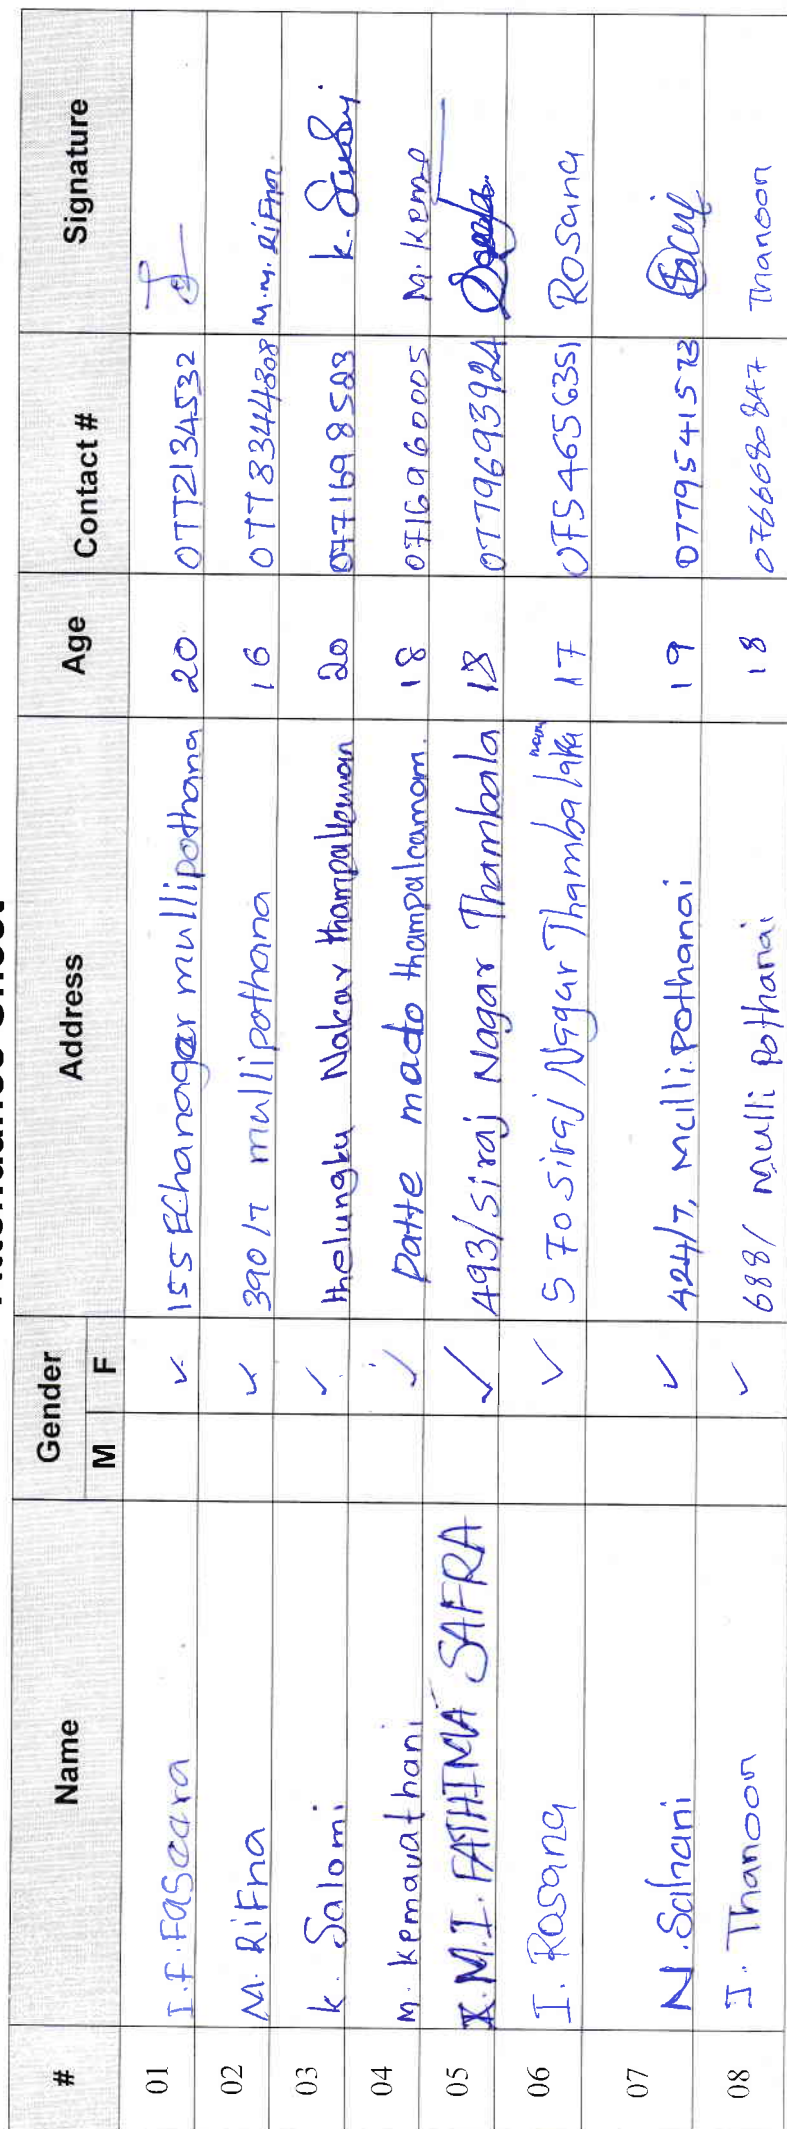 # Name Gender Address Age Contact # Signature
M F
01 I.F.FaSeera ✓ 155 Echanagar mullipothana 20 0772134532
02 M. Rifna ✓ 390/7 mullipothana 16 0778344808 M.M. Rifna
03 k. Salomi ✓ thelungku Nakar thampalkamam 20 0771698523
04 M. kemavathani ✓ Patte mado thampalcamam. 18 0716960005 M. kema
05 M.I. FATHIMA SAFRA ✓ 493/Siraj Nagar Thambala 18 0779693924
06 I. Rosana ✓ 570 Siraj Nagar Thambalaka 17 0754656351 Rosana
07 N. Sahani ✓ 424/7, Mullipothanai 19 0779541573
08 J. Thanoon ✓ 688/ Mulli pothanai 18 0766680847 Thanoon